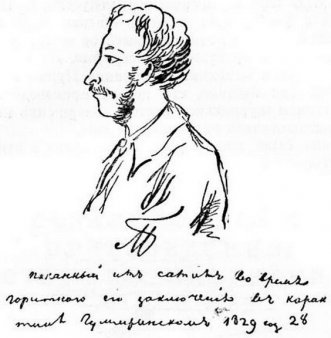 писанный имъ самимъ во время
горестнаго его заключенія въ каран
тинѣ Гумиринскомъ 1829 год 28